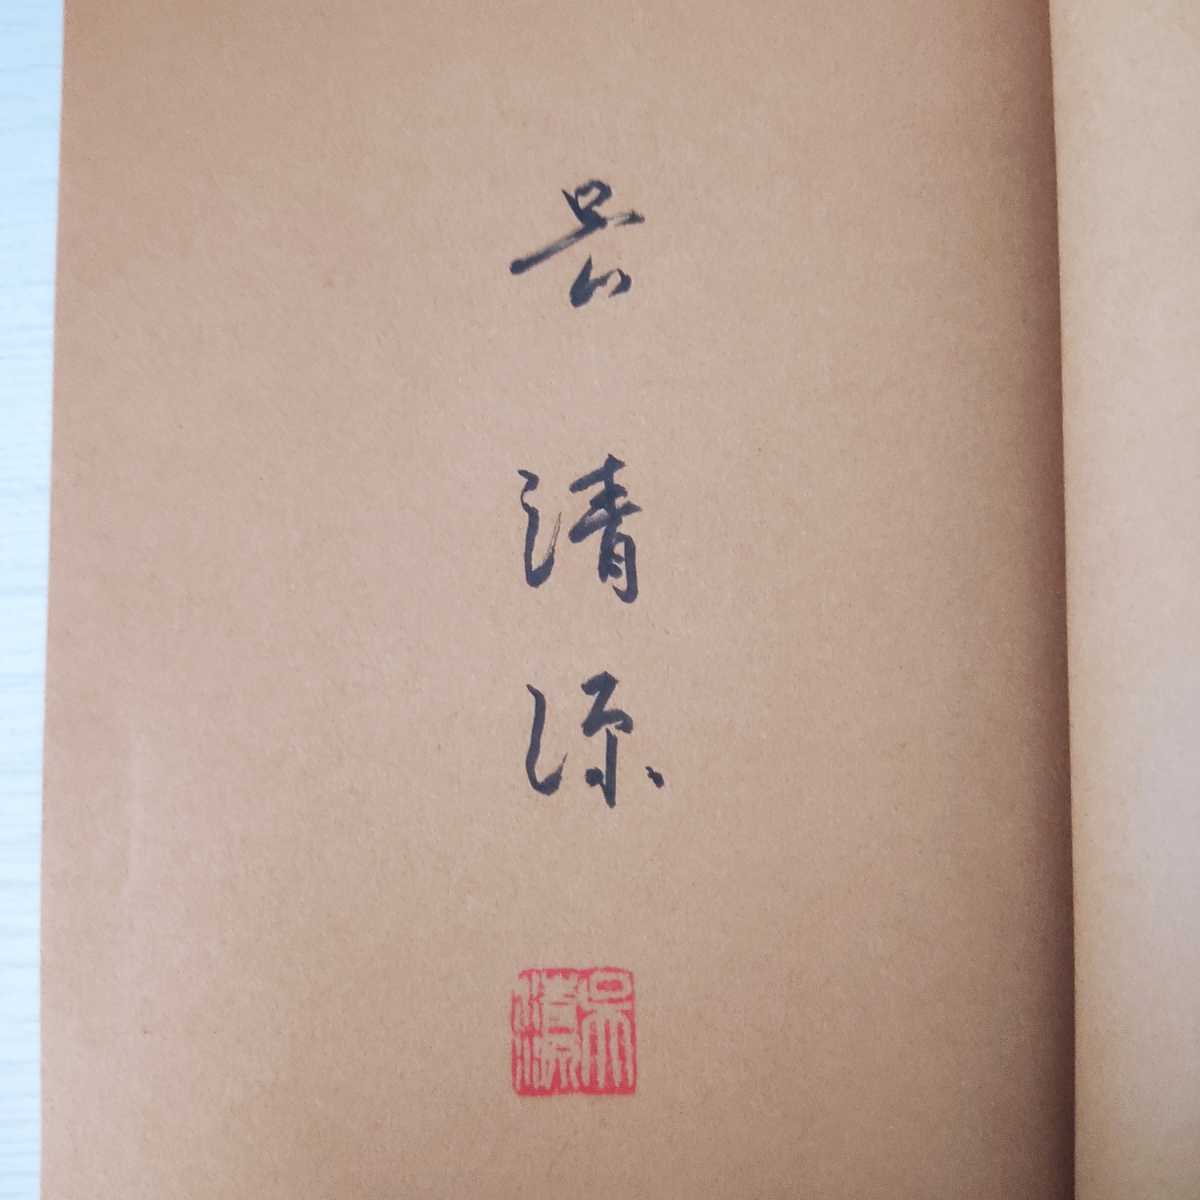 呉
清
源
呉清源